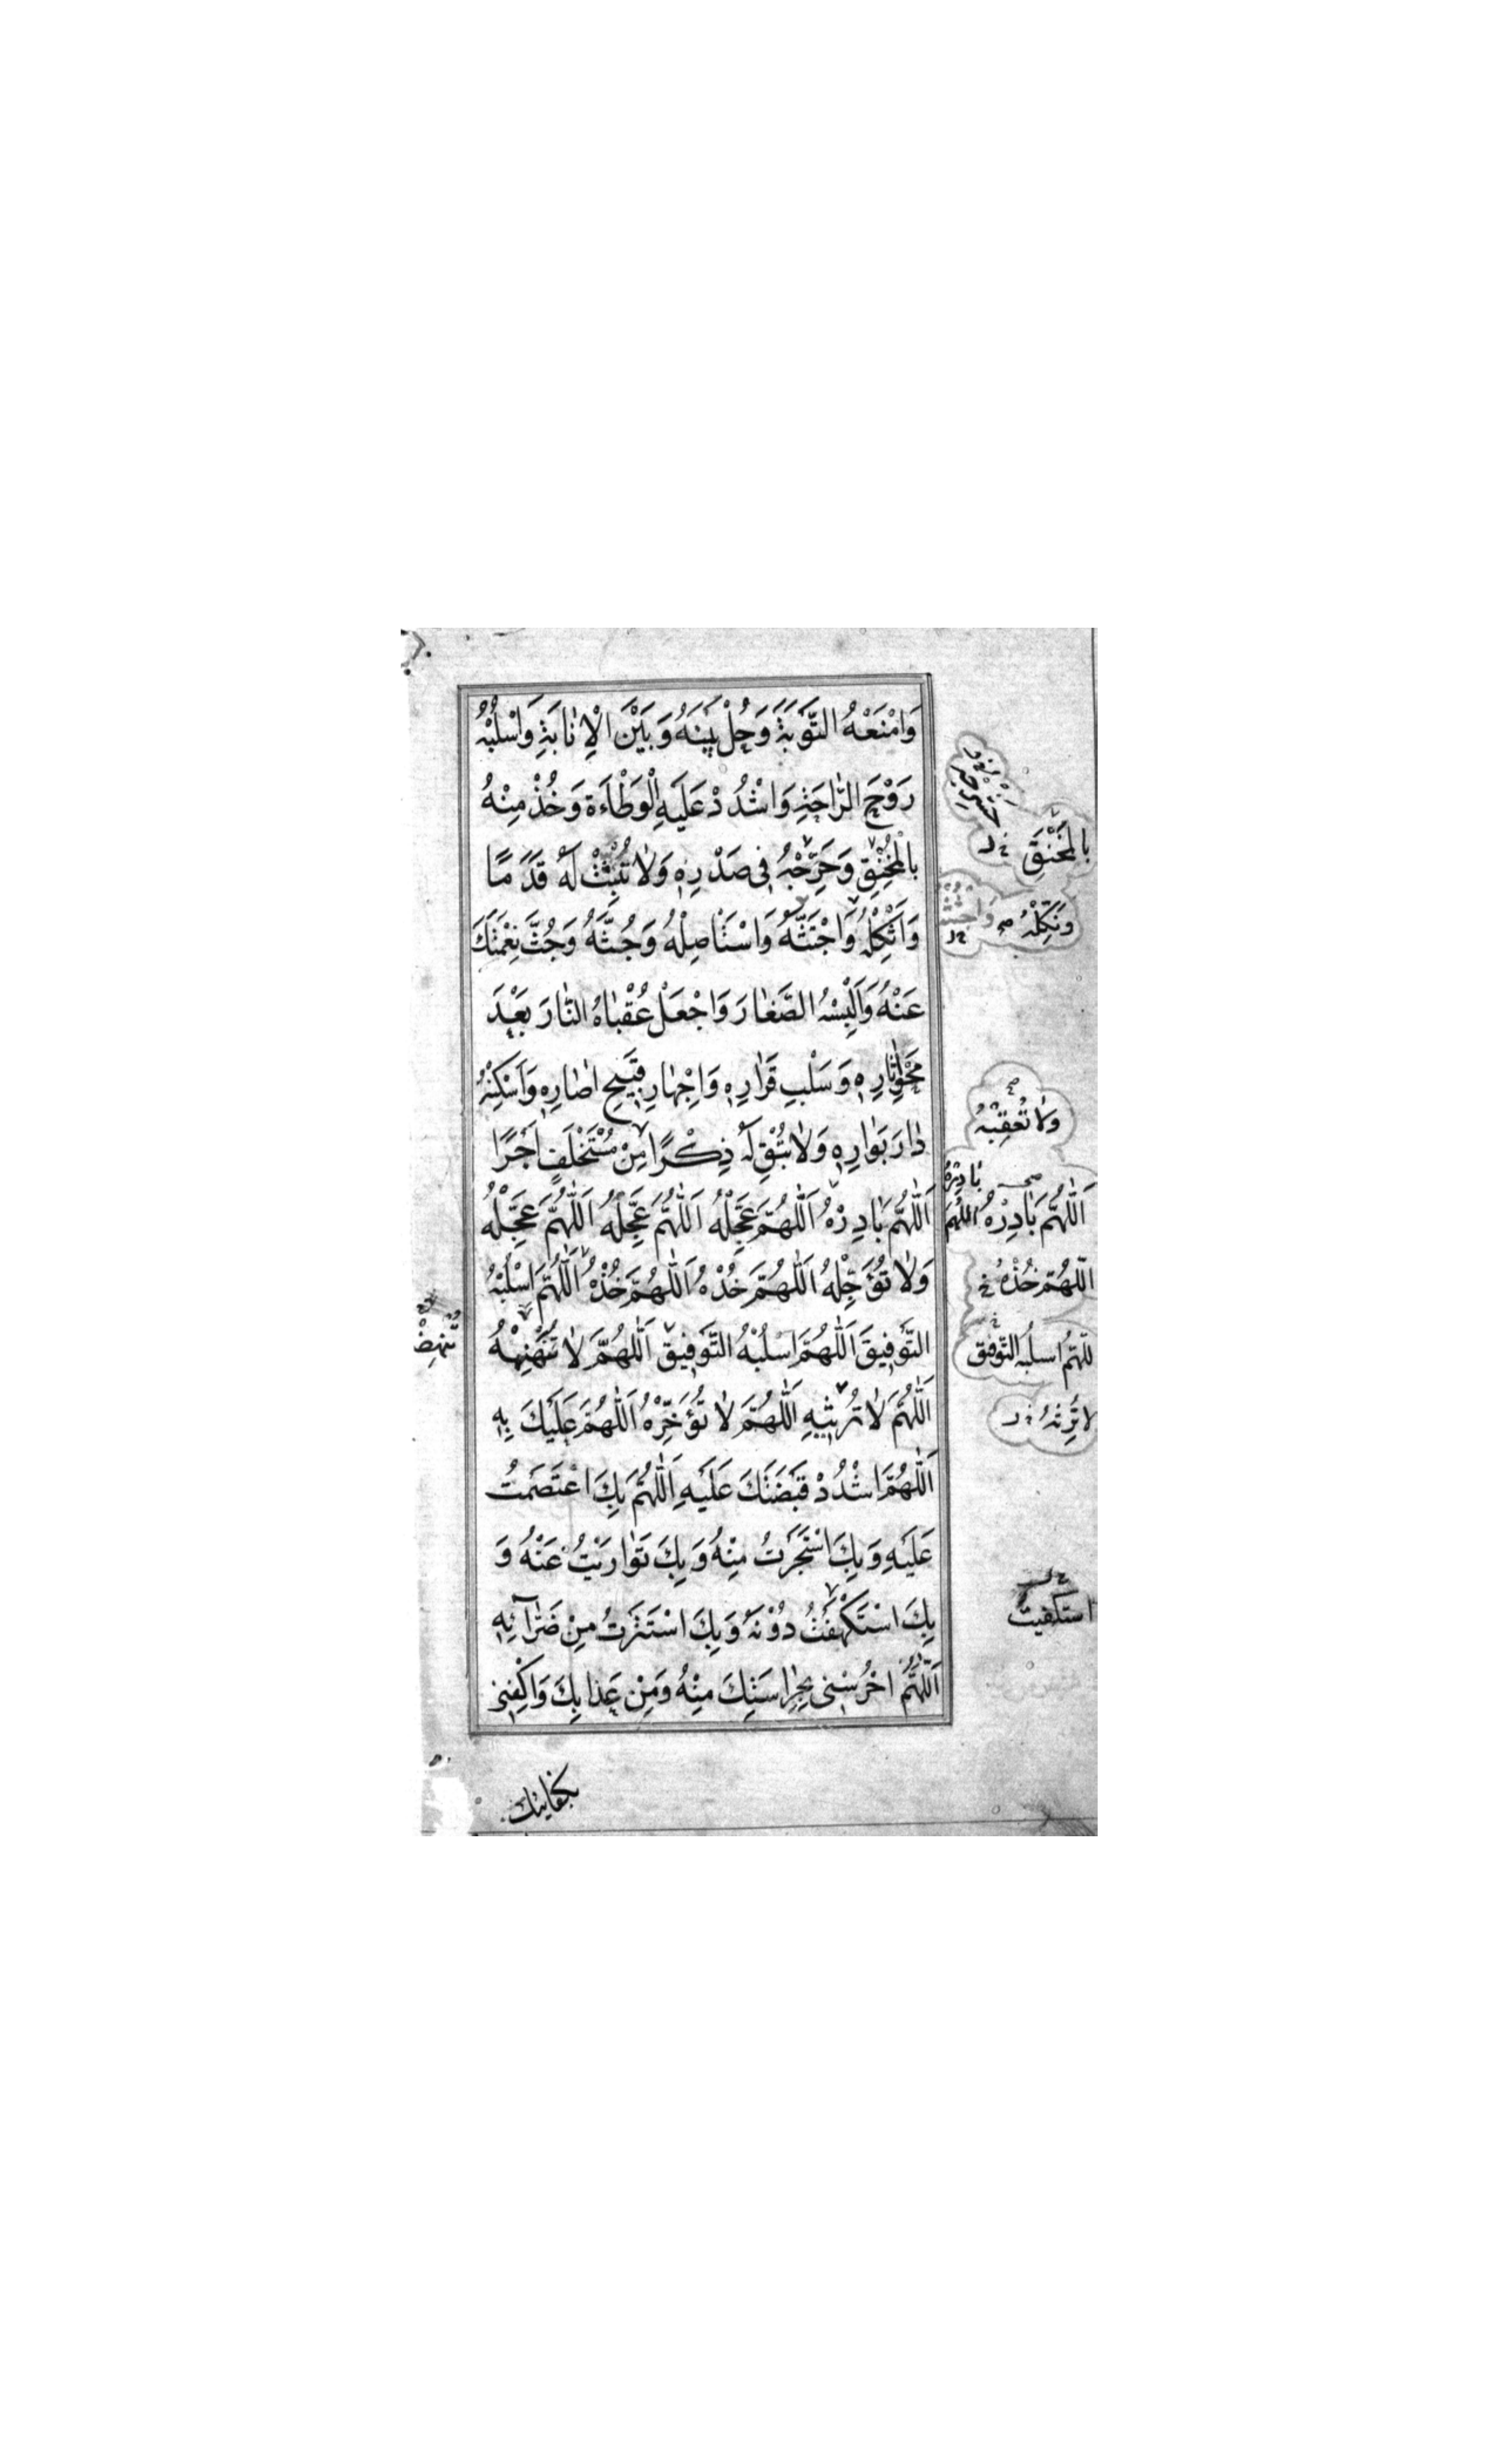 وَامْنَعْهُ التَّوْبَةَ وَحُلْ بَيْنَهُ وَبَيْنَ الْاِنٰابَةِ وَاسْلُبْهُ
رَوْحَ الرّٰاحَةِ وَاشْدُدْ عَلَيْهِ الْوَطْاَةَ وَخُذْ مِنْهُ
بِالْمُخَنِّقِ وَحَرِّجْهُ فِى صَدْرِهِ وَلٰا تُثْبِتْ لَهُ قَدَمًا
وَاَثْكِلْهُ وَاجْتَثَّهُ وَاسْتَاْصِلْهُ وَجُثَّهُ وَجُثَّ نِعْمَتَكَ
عَنْهُ وَاَلْبِسْهُ الصَّغٰارَ وَاجْعَلْ عُقْبٰاهُ النّٰارَ بَعْدَ
مَحْوِ اٰثٰارِهِ وَسَلْبِ قَرٰارِهِ وَاِجْهٰارِ قَبِيحِ اٰصٰارِهِ وَاَسْكِنْهُ
دٰارَ بَوٰارِهِ وَلٰا تُبْقِ لَهُ ذِكْرًا مِنْ مُسْتَخْلَفٍ اَجْرًا
اَللّٰهُمَّ بٰادِرْهُ اَللّٰهُمَّ عَجِّلْهُ اَللّٰهُمَّ عَجِّلْهُ اَللّٰهُمَّ عَجِّلْهُ
وَلٰا تُؤَجِّلْهُ اَللّٰهُمَّ خُذْهُ اَللّٰهُمَّ خُذْهُ اَللّٰهُمَّ اسْلُبْهُ
التَّوْفِيقَ اَللّٰهُمَّ اسْلُبْهُ التَّوْفِيقَ اَللّٰهُمَّ لٰا تُنْهِنِهْهُ
اَللّٰهُمَّ لٰا تُرِيْثِهِ اَللّٰهُمَّ لٰا تُؤَخِّرْهُ اَللّٰهُمَّ عَلَيْكَ بِهِ
اَللّٰهُمَّ اشْدُدْ قَبْضَتَكَ عَلَيْهِ اَللّٰهُمَّ بِكَ اعْتَصَمْتُ
عَلَيْهِ وَبِكَ اسْتَجَرْتُ مِنْهُ وَبِكَ تَوٰارَيْتُ عَنْهُ وَ
بِكَ اسْتَكْهَفْتُ دُوْنَهُ وَبِكَ اسْتَتَرْتُ مِنْ ضَرّٰآئِهِ
اَللّٰهُمَّ احْرُسْنِى بِحِرٰاسَتِكَ مِنْهُ وَمِنْ عَذٰابِكَ وَاكْفِنِى
بكفايتك
بِالْمُخَنَّقِ
وَنَكِّلْهُ
وَلٰا تُعْقِبْهُ
بٰادِرْهُ
اَللّٰهُمَّ بٰادِرْهُ اللّٰهُمَّ
اللّٰهُمَّ خُذْهُ خ
للّهمّ اسلبه التّوفيق
لا تُرِثْهُ
استكفيت
تُنْهِضْ